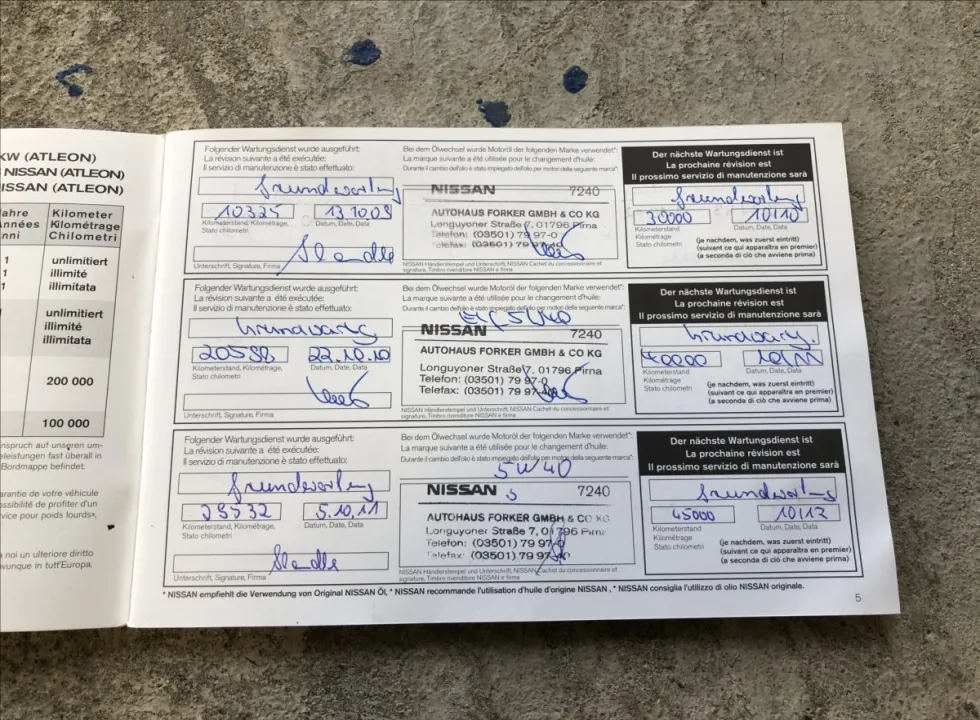 KW (ATLEON)
NISSAN (ATLEON)
ISSAN (ATLEON)
Jahre
Années
nni
Kilometer
Kilométrage
Chilometri
1
1
1
unlimitiert
illimité
illimitata
unlimitiert
illimité
illimitata
200 000
100 000
nspruch auf unseren um-
eleistungen fast überall in
Bordmappe befindet.
arantie de votre véhicule
ossibilité de profiter d'un
vice pour poids lourds»,
a noi un ulteriore diritto
ovunque in tutt'Europa.
Folgender Wartungsdienst wurde ausgeführt:
La révision suivante a été exécutée:
Il servizio di manutenzione è stato effettuato:
Grundwartung
10325 13.10.09
Kilometerstand, Kilométrage, Stato chilometri
Datum, Date, Data
Unterschrift, Signature, Firma
Bei dem Ölwechsel wurde Motoröl der folgenden Marke verwendet*:
La marque suivante a été utilisée pour le changement d'huile:
Durante il cambio dell'olio è stato impiegato dell'olio per motori della seguente marca*:
NISSAN 7240
AUTOHAUS FORKER GMBH & CO KG
Longuyoner Straße 7, 01796 Pirna
Telefon: (03501) 79 97-0
Telefax: (03501) 79 97-40
NISSAN Händlerstempel und Unterschrift, NISSAN Cachet du concessionnaire et
signature, Timbro rivenditore NISSAN e firma
Der nächste Wartungsdienst ist
La prochaine révision est
Il prossimo servizio di manutenzione sarà
Grundwartung
30000 10/10
Kilometerstand
Kilométrage
Stato chilometri
Datum, Date, Data
(je nachdem, was zuerst eintritt)
(suivant ce qui apparaîtra en premier)
(a seconda di ciò che avviene prima)
Folgender Wartungsdienst wurde ausgeführt:
La révision suivante a été exécutée:
Il servizio di manutenzione è stato effettuato:
Grundwartg
20588 22.10.10
Kilometerstand, Kilométrage, Stato chilometri
Datum, Date, Data
Unterschrift, Signature, Firma
Bei dem Ölwechsel wurde Motoröl der folgenden Marke verwendet*:
La marque suivante a été utilisée pour le changement d'huile:
Durante il cambio dell'olio è stato impiegato dell'olio per motori della seguente marca*:
5W40
NISSAN 7240
AUTOHAUS FORKER GMBH & CO KG
Longuyoner Straße 7, 01796 Pirna
Telefon: (03501) 79 97-0
Telefax: (03501) 79 97-40
NISSAN Händlerstempel und Unterschrift, NISSAN Cachet du concessionnaire et
signature, Timbro rivenditore NISSAN e firma
Der nächste Wartungsdienst ist
La prochaine révision est
Il prossimo servizio di manutenzione sarà
Grundwartg.
40000 10/11
Kilometerstand
Kilométrage
Stato chilometri
Datum, Date, Data
(je nachdem, was zuerst eintritt)
(suivant ce qui apparaîtra en premier)
(a seconda di ciò che avviene prima)
Folgender Wartungsdienst wurde ausgeführt:
La révision suivante a été exécutée:
Il servizio di manutenzione è stato effettuato:
Grundwartung
28532 5.10.11
Kilometerstand, Kilométrage, Stato chilometri
Datum, Date, Data
Unterschrift, Signature, Firma
Bei dem Ölwechsel wurde Motoröl der folgenden Marke verwendet*:
La marque suivante a été utilisée pour le changement d'huile:
Durante il cambio dell'olio è stato impiegato dell'olio per motori della seguente marca*:
5W40
NISSAN 7240
AUTOHAUS FORKER GMBH & CO KG
Longuyoner Straße 7, 01796 Pirna
Telefon: (03501) 79 97-0
Telefax: (03501) 79 97-40
NISSAN Händlerstempel und Unterschrift, NISSAN Cachet du concessionnaire et
signature, Timbro rivenditore NISSAN e firma
Der nächste Wartungsdienst ist
La prochaine révision est
Il prossimo servizio di manutenzione sarà
Grundwartung
45000 10/12
Kilometerstand
Kilométrage
Stato chilometri
Datum, Date, Data
(je nachdem, was zuerst eintritt)
(suivant ce qui apparaîtra en premier)
(a seconda di ciò che avviene prima)
* NISSAN empfiehlt die Verwendung von Original NISSAN Öl, * NISSAN recommande l'utilisation d'huile d'origine NISSAN , * NISSAN consiglia l'utilizzo di olio NISSAN originale.
5